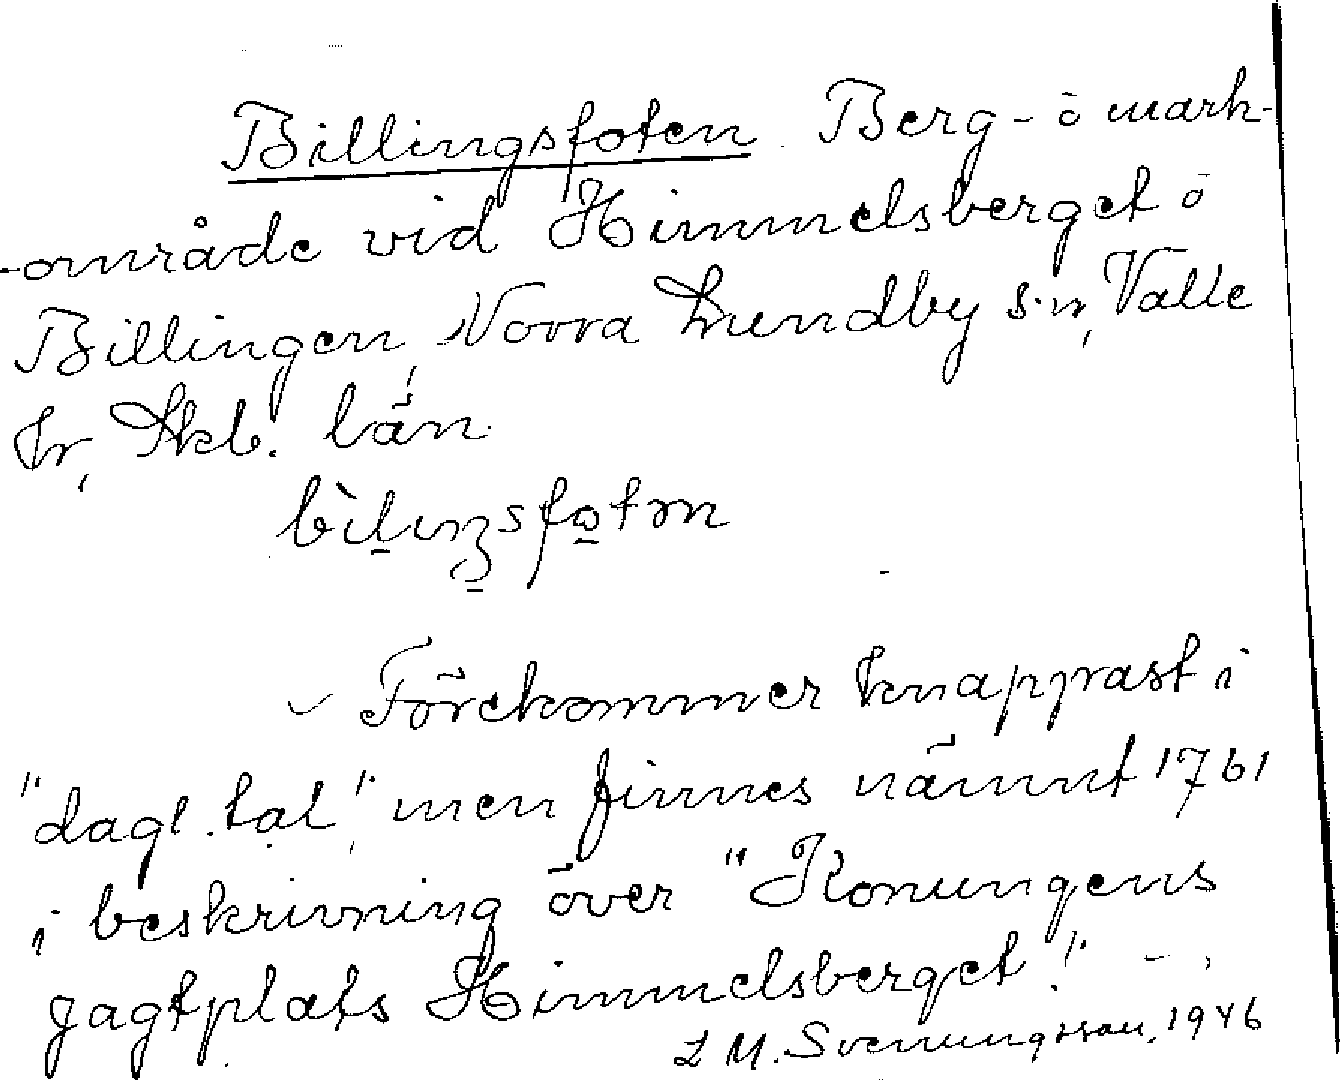 Billingsfoten Berg- ö mark-
-område vid Himmelsberget ö
Billingen, Norra Lundby s:n, Valle
hr, Skb. län.
bìlıŋsfotən
Förekommer knappast i
"dagl. tal", men finnes nämnt 1761
i beskrivning över "Konungens
jagtplats Himmelsberget". -
L M. Svenungsson, 1946